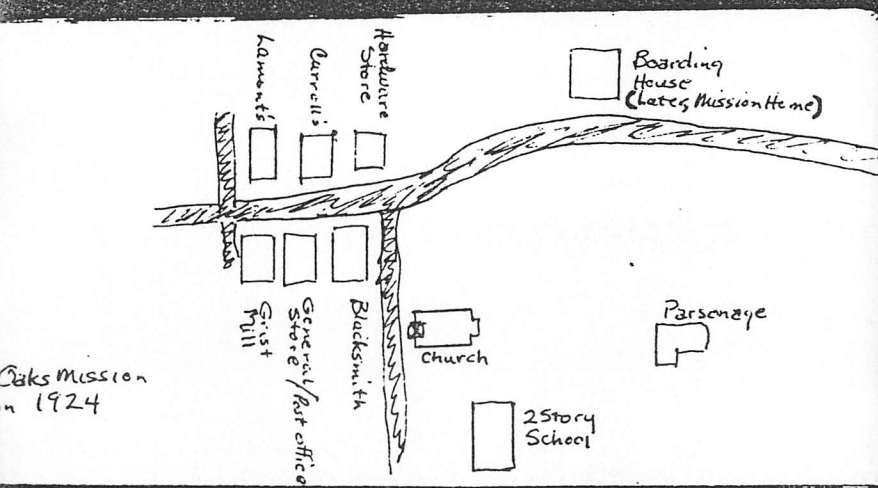 Lamont's
Curroll's
Hardware
Store
Boarding
House
(Later Mission Home)
Grist
Mill
General/Post office
Store
Blacksmith
Church
Parsonage
2 Story
School
Oaks Mission
n 1924